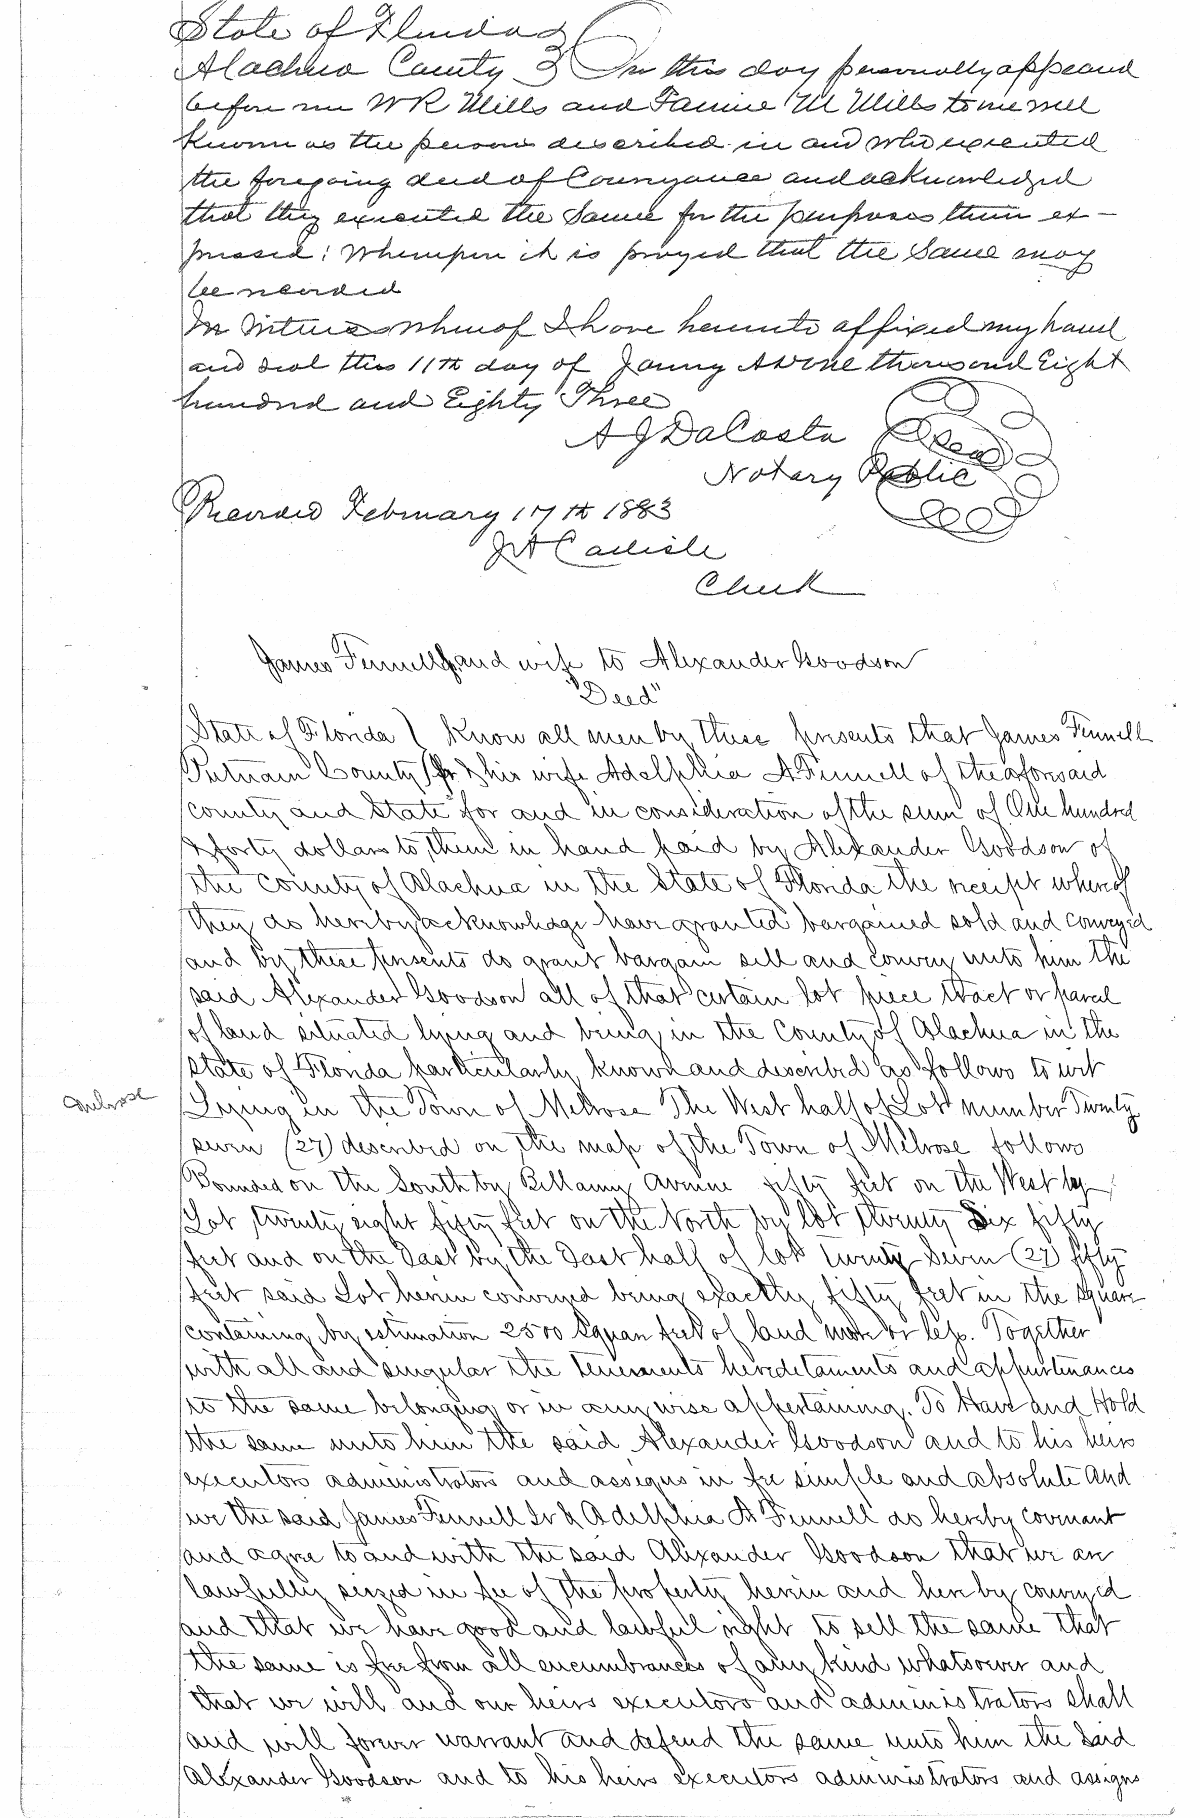 State of Florida
Alachua County } On this day personally appeared
before me W R Mills and Fannie M Mills to me well
known as the persons described in and who executed
the foregoing deed of Conveyance and acknowledged
that they executed the Same for the purposes therein ex-
pressed; Whereupon it is prayed that the Same may
be recorded
In Witness Whereof I have hereunto affixed my hand
and seal this 11th day of Janry AD One thousand Eight
hundred and Eighty Three
A J DaCosta Seal
Notary Public
Recorded February 17th 1883
J A Carlisle
Clerk
James Fennell and wife to Alexander Goodson
"Deed"
State of Florida ( Know all men by these presents that James Fennell
Putnam County ( Sr & his wife Adelphia A Fennell of the aforesaid
county and State for and in consideration of the sum of One hundred
& forty dollars to them in hand paid by Alexander Goodson of
the County of Alachua in the State of Florida the receipt whereof
they do hereby acknowledge have granted bargained sold and conveyed
and by these presents do grant bargain sell and convey unto him the
said Alexander Goodson all of that certain lot piece tract or parcel
of land situated lying and being in the County of Alachua in the
State of Florida particularly known and described as follows to wit
Melrose
Lying in the Town of Melrose The West half of Lot number Twenty
seven (27) described on the map of the Town of Melrose follows
Bounded on the South by Bellamy Avenue fifty feet on the West by
Lot twenty eight fifty feet on the North by lot twenty Six fifty
feet and on the East by the East half of lot Twenty Seven (27) fifty
feet said Lot herein conveyed being exactly fifty feet in the square
containing by estimation 2500 Square feet of land more or less. Together
with all and singular the tenements heredetaments and appurtenances
to the same belonging or in any wise appertaining. To Have and Hold
the same unto him the said Alexander Goodson and to his heirs
executors administrators and assigns in fee simple and absolute And
we the said James Fennell Sr & Adelphia A Fennell do hereby covenant
and agree to and with the said Alexander Goodson that we are
lawfully seized in fee of the property herein and hereby conveyed
and that we have good and lawful right to sell the same that
the same is free from all encumbrances of any kind whatsoever and
that we will and our heirs executors and administrators shall
and will forever warrant and defend the same unto him the Said
Alexander Goodson and to his heirs executors administrators and assigns